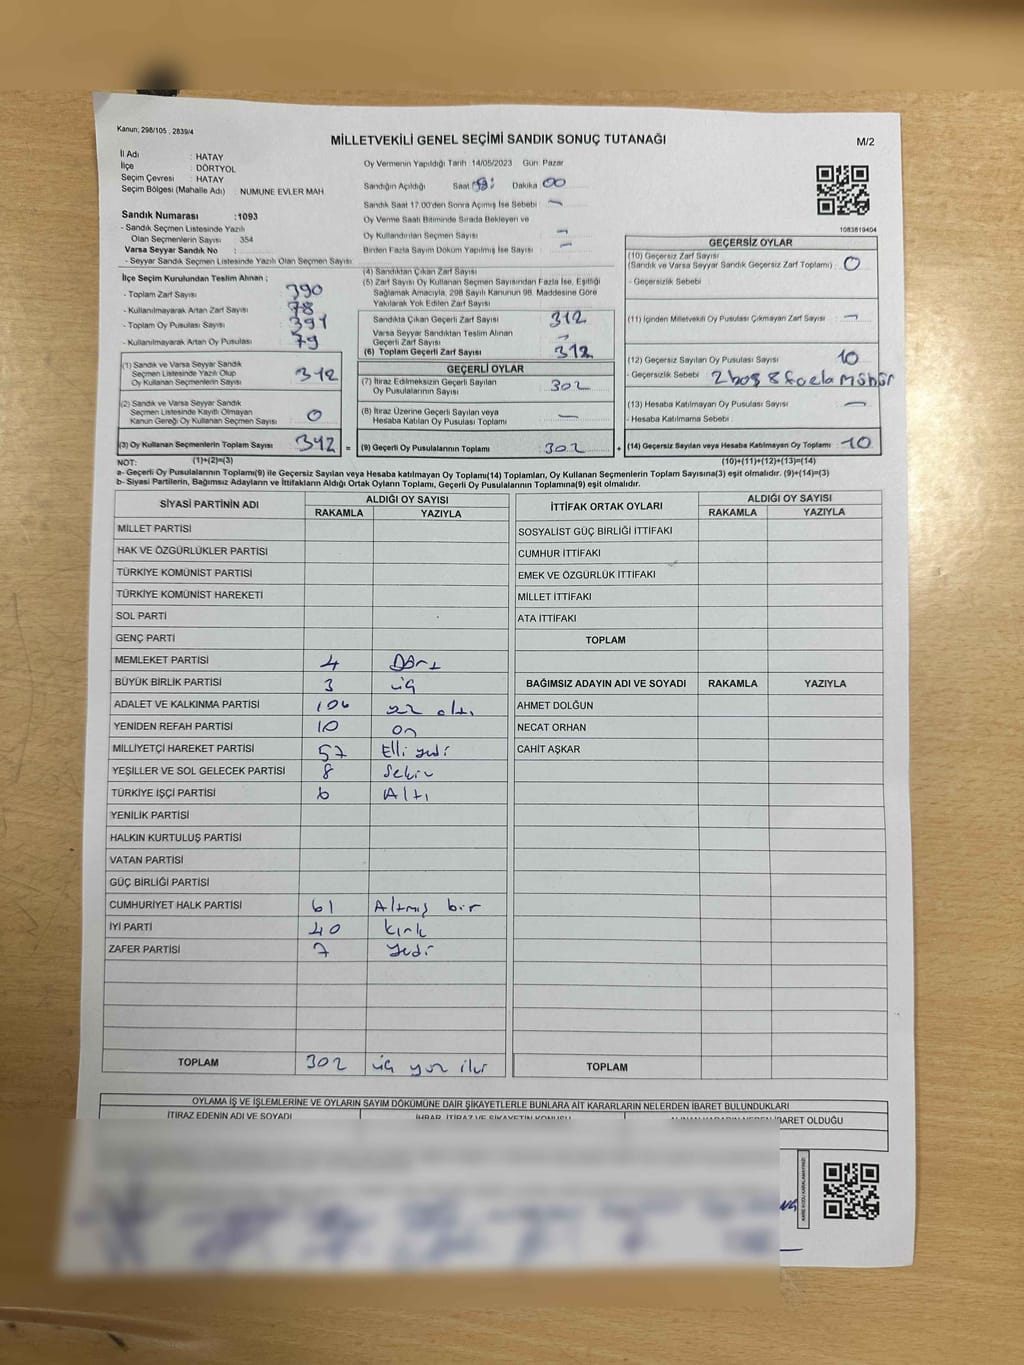 Kanun; 298/105 , 2839/4
MİLLETVEKİLİ GENEL SEÇİMİ SANDIK SONUÇ TUTANAĞI
M/2
İl Adı : HATAY
İlçe : DÖRTYOL
Seçim Çevresi : HATAY
Seçim Bölgesi (Mahalle Adı) : NUMUNE EVLER MAH
Oy Vermenin Yapıldığı Tarih 14/05/2023 Gün: Pazar
Sandığın Açıldığı Saat Dakika 00
Sandık Saat 17.00'den Sonra Açılmış İse Sebebi: -
Oy Verme Saati Bitiminde Sırada Bekleyen ve
Oy Kullandırılan Seçmen Sayısı -
Birden Fazla Sayım Döküm Yapılmış İse Sayısı -
Sandık Numarası :1093
- Sandık Seçmen Listesinde Yazılı
Olan Seçmenlerin Sayısı : 354
Varsa Seyyar Sandık No :
- Seyyar Sandık Seçmen Listesinde Yazılı Olan Seçmen Sayısı
1083619404
İlçe Seçim Kurulundan Teslim Alınan ;
- Toplam Zarf Sayısı 390
- Kullanılmayarak Artan Zarf Sayısı 78
- Toplam Oy Pusulası Sayısı 391
- Kullanılmayarak Artan Oy Pusulası 79
(1) Sandık ve Varsa Seyyar Sandık
Seçmen Listesinde Yazılı Olup
Oy Kullanan Seçmenlerin Sayısı 312
(2) Sandık ve Varsa Seyyar Sandık
Seçmen Listesinde Kayıtlı Olmayan
Kanun Gereği Oy Kullanan Seçmen Sayısı 0
(3) Oy Kullanan Seçmenlerin Toplam Sayısı 312 =
(4) Sandıktan Çıkan Zarf Sayısı
(5) Zarf Sayısı Oy Kullanan Seçmen Sayısından Fazla İse, Eşitliği
Sağlamak Amacıyla, 298 Sayılı Kanunun 98. Maddesine Göre
Yakılarak Yok Edilen Zarf Sayısı
Sandıkta Çıkan Geçerli Zarf Sayısı 312
Varsa Seyyar Sandıktan Teslim Alınan
Geçerli Zarf Sayısı -
(6) Toplam Geçerli Zarf Sayısı 312
GEÇERLİ OYLAR
(7) İtiraz Edilmeksizin Geçerli Sayılan
Oy Pusulalarının Sayısı 302
(8) İtiraz Üzerine Geçerli Sayılan veya
Hesaba Katılan Oy Pusulası Toplamı -
(9) Geçerli Oy Pusulalarının Toplamı 302 +
GEÇERSİZ OYLAR
(10) Geçersiz Zarf Sayısı
(Sandık ve Varsa Seyyar Sandık Geçersiz Zarf Toplamı) : 0
- Geçersizlik Sebebi :
(11) İçinden Milletvekili Oy Pusulası Çıkmayan Zarf Sayısı : -
(12) Geçersiz Sayılan Oy Pusulası Sayısı : 10
- Geçersizlik Sebebi : 2 boş 8 fazla Mühür
(13) Hesaba Katılmayan Oy Pusulası Sayısı : -
- Hesaba Katılmama Sebebi :
(14) Geçersiz Sayılan veya Hesaba Katılmayan Oy Toplamı : 10
NOT: (1)+(2)=(3)
(10)+(11)+(12)+(13)=(14)
a- Geçerli Oy Pusulalarının Toplamı(9) ile Geçersiz Sayılan veya Hesaba katılmayan Oy Toplamı(14) Toplamları, Oy Kullanan Seçmenlerin Toplam Sayısına(3) eşit olmalıdır. (9)+(14)=(3)
b- Siyasi Partilerin, Bağımsız Adayların ve İttifakların Aldığı Ortak Oyların Toplamı, Geçerli Oy Pusulalarının Toplamına(9) eşit olmalıdır.
SİYASİ PARTİNİN ADI ALDIĞI OY SAYISI
RAKAMLA YAZIYLA
MİLLET PARTİSİ
HAK VE ÖZGÜRLÜKLER PARTİSİ
TÜRKİYE KOMÜNİST PARTİSİ
TÜRKİYE KOMÜNİST HAREKETİ
SOL PARTİ
GENÇ PARTİ
MEMLEKET PARTİSİ 4 Dört
BÜYÜK BİRLİK PARTİSİ 3 üç
ADALET VE KALKINMA PARTİSİ 106 yüz altı
YENİDEN REFAH PARTİSİ 10 on
MİLLİYETÇİ HAREKET PARTİSİ 57 Elli yedi
YEŞİLLER VE SOL GELECEK PARTİSİ 8 Sekiz
TÜRKİYE İŞÇİ PARTİSİ 6 Altı
YENİLİK PARTİSİ
HALKIN KURTULUŞ PARTİSİ
VATAN PARTİSİ
GÜÇ BİRLİĞİ PARTİSİ
CUMHURİYET HALK PARTİSİ 61 Altmış bir
İYİ PARTİ 40 kırk
ZAFER PARTİSİ 7 yedi
TOPLAM 302 üç yüz iki
İTTİFAK ORTAK OYLARI ALDIĞI OY SAYISI
RAKAMLA YAZIYLA
SOSYALİST GÜÇ BİRLİĞİ İTTİFAKI
CUMHUR İTTİFAKI
EMEK VE ÖZGÜRLÜK İTTİFAKI
MİLLET İTTİFAKI
ATA İTTİFAKI
TOPLAM
BAĞIMSIZ ADAYIN ADI VE SOYADI RAKAMLA YAZIYLA
AHMET DOLĞUN
NECAT ORHAN
CAHİT AŞKAR
TOPLAM
OYLAMA İŞ VE İŞLEMLERİNE VE OYLARIN SAYIM DÖKÜMÜNE DAİR ŞİKAYETLERLE BUNLARA AİT KARARLARIN NELERDEN İBARET BULUNDUKLARI
İTİRAZ EDENİN ADI VE SOYADI İHBAR, İTİRAZ VE ŞİKAYETİN KONUSU ALINAN KARARIN NEDEN İBARET OLDUĞU